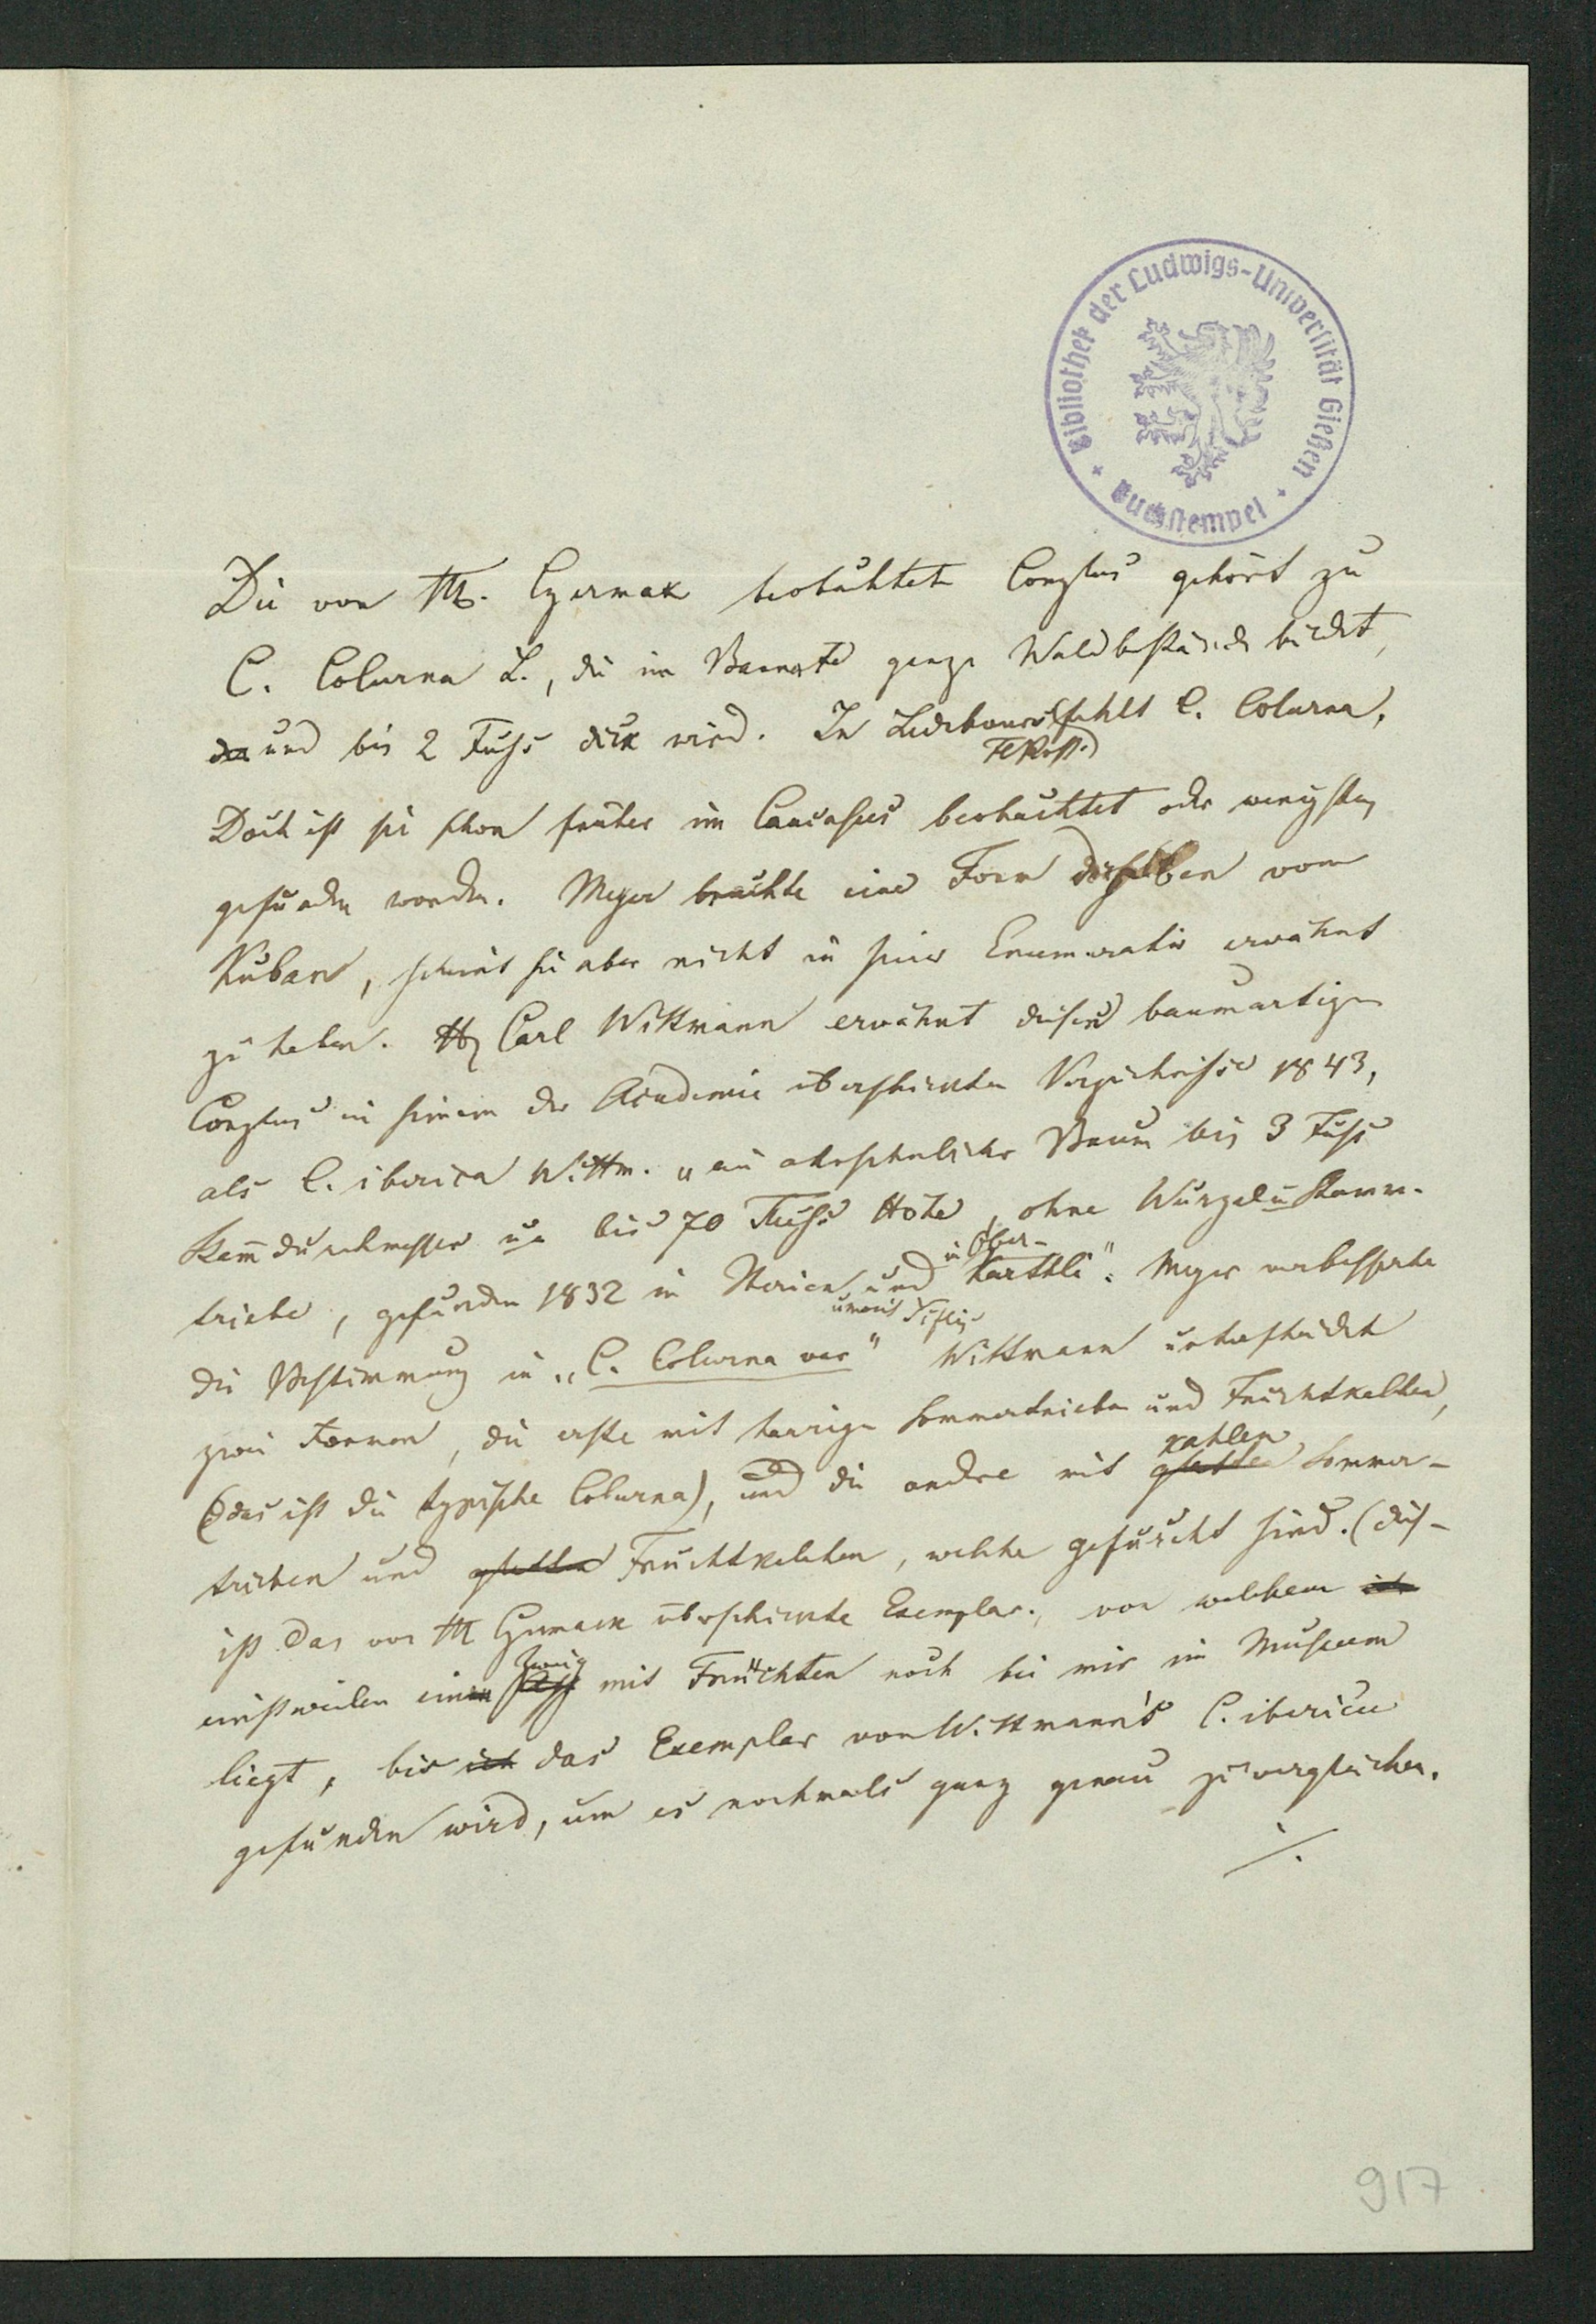 Bibliothek der Ludwigs-Universität Gießen
Buchstempel
Die von H. Czermak beobachtete Corylus gehört zu
C. Colurna L., die im Bannate ganze Waldbestände bildet,
da und bis 2 Fuss dick wird. In Ledebours fehlt C. Colurna,
Fl. Ross.
Doch ist sie schon früher im Caucasus beobachtet oder wenigstens
gefunden worden. Meyer brachte eine Form derselben vom
Kuban, scheint sie aber nicht in seiner Enumeratio erwähnt
zu haben. H. Carl Wittmann erwähnt diesen baumartigen
Corylus in seinem der Academie überschickten Verzeichnisse 1843,
als C. iberica Wittm. „ein ansehnlicher Baum bis 3 Fuss
Stammdurchmesser u. bis 70 Fuss Höhe, ohne Wurzel u Stamm-
triebe, gefunden 1832 in Iberien und in Ober-
Karthli". Meyer verbesserte
unweit Tiflis
die Bestimmung in „C. Colurna var" Wittmann unterscheidet
zwei Formen, die erste mit haarigen Sommertrieben und Fruchtkelchen,
(das ist die typische Colurna), und die andre mit glatten kahlen Sommer-
trieben und glatten Fruchtkelchen, welche gefurcht sind. (dies
ist das von H Czermack überschickte Exemplar, von welchem ich
einstweilen einen Zweig mit Früchten noch bei mir im Museum
liegt, bis ich das Exemplar von Wittmann's C. iberica
gefunden wird, um es nochmals ganz genau zu vergleichen.
./.
917